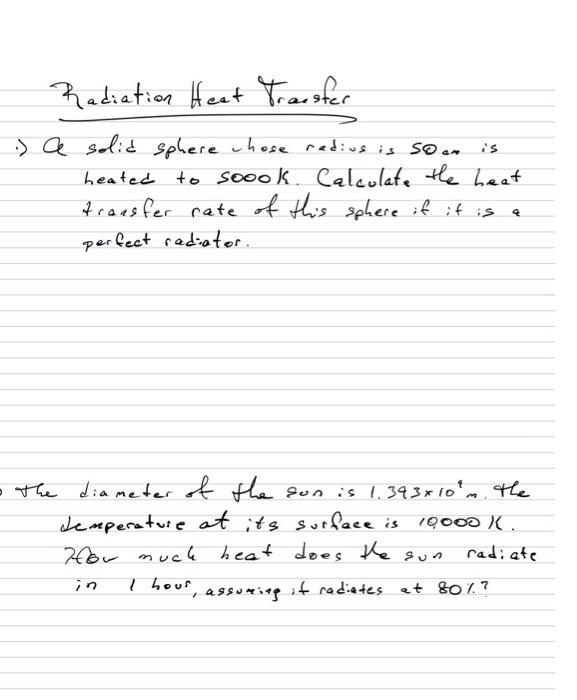 Radiation Heat Transfer
.) A solid sphere whose radius is 50 cm is
heated to 5000 K. Calculate the heat
transfer rate of this sphere if it is a
perfect radiator.
The diameter of the sun is 1.393x10⁹ m. The
temperature at its surface is 10,000 K.
How much heat does the sun radiate
in 1 hour, assuming it radiates at 80%?